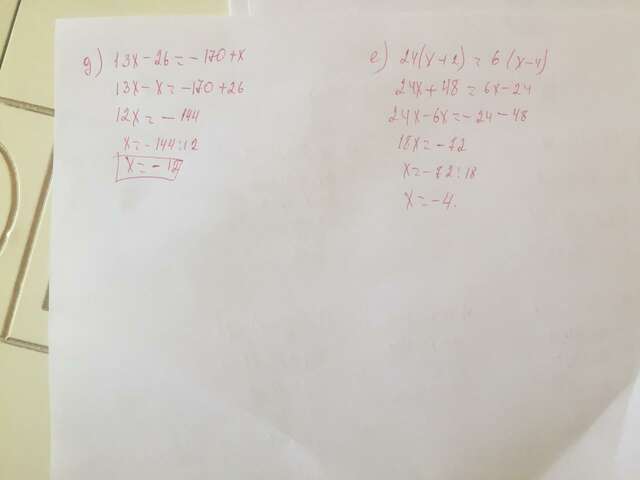 д) 13x - 26 = -170 + x
13x - x = -170 + 26
12x = -144
x = -144:12
x = -12
е) 24(x + 2) = 6(x - 4)
24x + 48 = 6x - 24
24x - 6x = -24 - 48
18x = -72
x = -72:18
x = -4.